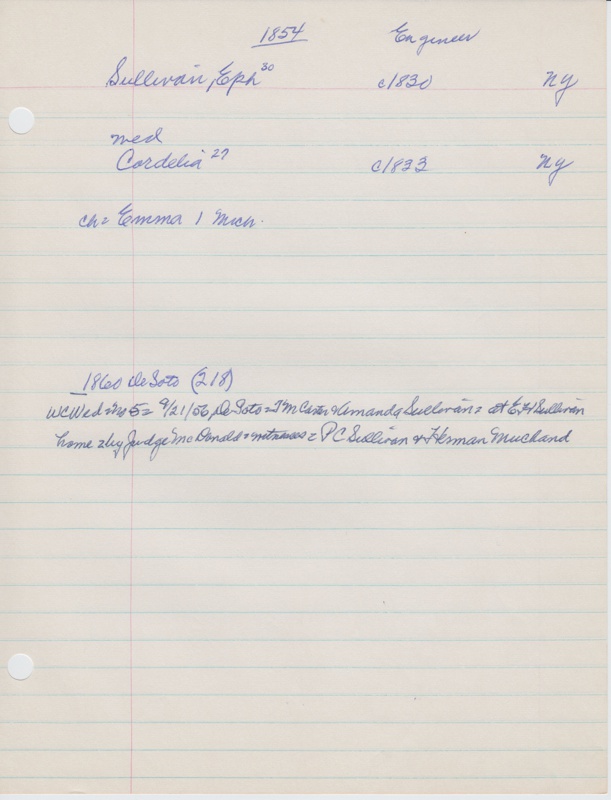 1854 Engineer
Sullivan, Eph 30 c1830 Ny
med
Cordelia 27 c1833 Ny
ch = Emma 1 Mich.
1860 DeSoto (218)
WC Wed = No 5 = 9/21/56 DeSoto = T M Carter & Amanda Sullivan = at E H Sullivan
home = by Judge McDonald = witnesses = P C Sullivan & Herman